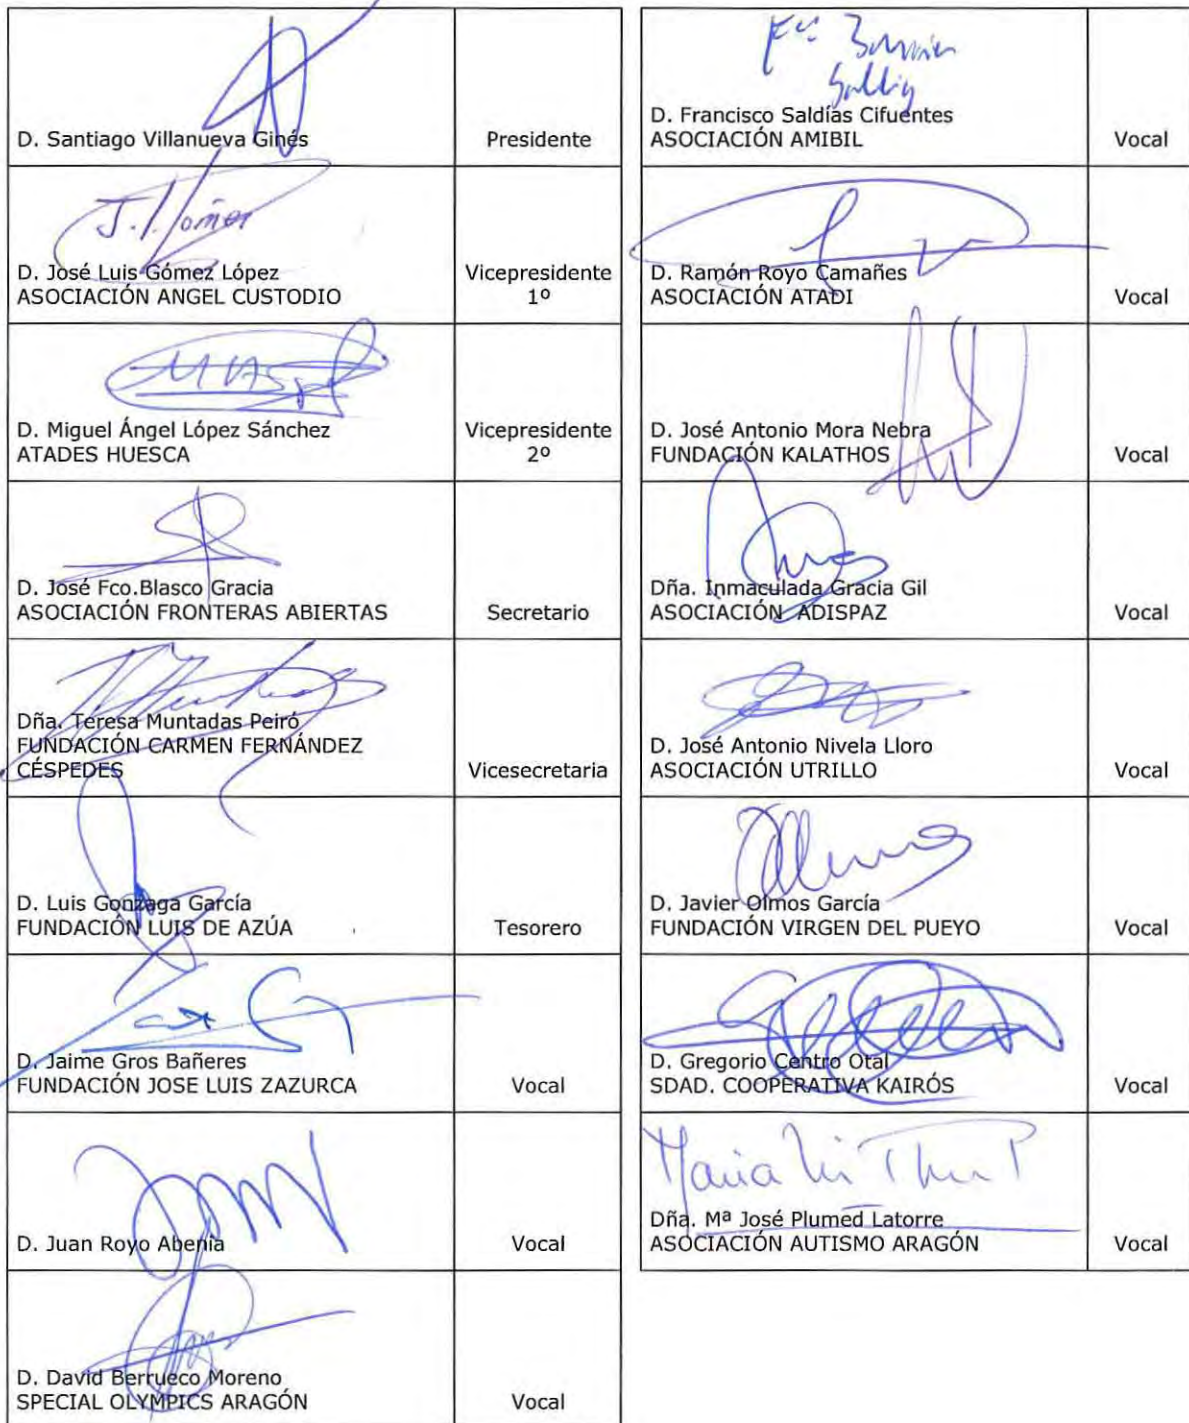 D. Santiago Villanueva Ginés
Presidente
J.L. Gómez
D. José Luis Gómez López
ASOCIACIÓN ANGEL CUSTODIO
Vicepresidente
1º
D. Miguel Ángel López Sánchez
ATADES HUESCA
Vicepresidente
2º
D. José Fco.Blasco Gracia
ASOCIACIÓN FRONTERAS ABIERTAS
Secretario
Dña. Teresa Muntadas Peiró
FUNDACIÓN CARMEN FERNÁNDEZ
CÉSPEDES
Vicesecretaria
D. Luis Gonzaga García
FUNDACIÓN LUIS DE AZÚA
Tesorero
D. Jaime Gros Bañeres
FUNDACIÓN JOSE LUIS ZAZURCA
Vocal
D. Juan Royo Abenia
Vocal
D. David Berrueco Moreno
SPECIAL OLYMPICS ARAGÓN
Vocal
D. Francisco Saldías Cifuentes
ASOCIACIÓN AMIBIL
Vocal
D. Ramón Royo Camañes
ASOCIACIÓN ATADI
Vocal
D. José Antonio Mora Nebra
FUNDACIÓN KALATHOS
Vocal
Dña. Inmaculada Gracia Gil
ASOCIACIÓN ADISPAZ
Vocal
D. José Antonio Nivela Lloro
ASOCIACIÓN UTRILLO
Vocal
D. Javier Olmos García
FUNDACIÓN VIRGEN DEL PUEYO
Vocal
D. Gregorio Centro Otal
SDAD. COOPERATIVA KAIRÓS
Vocal
Maria
Dña. Mª José Plumed Latorre
ASOCIACIÓN AUTISMO ARAGÓN
Vocal